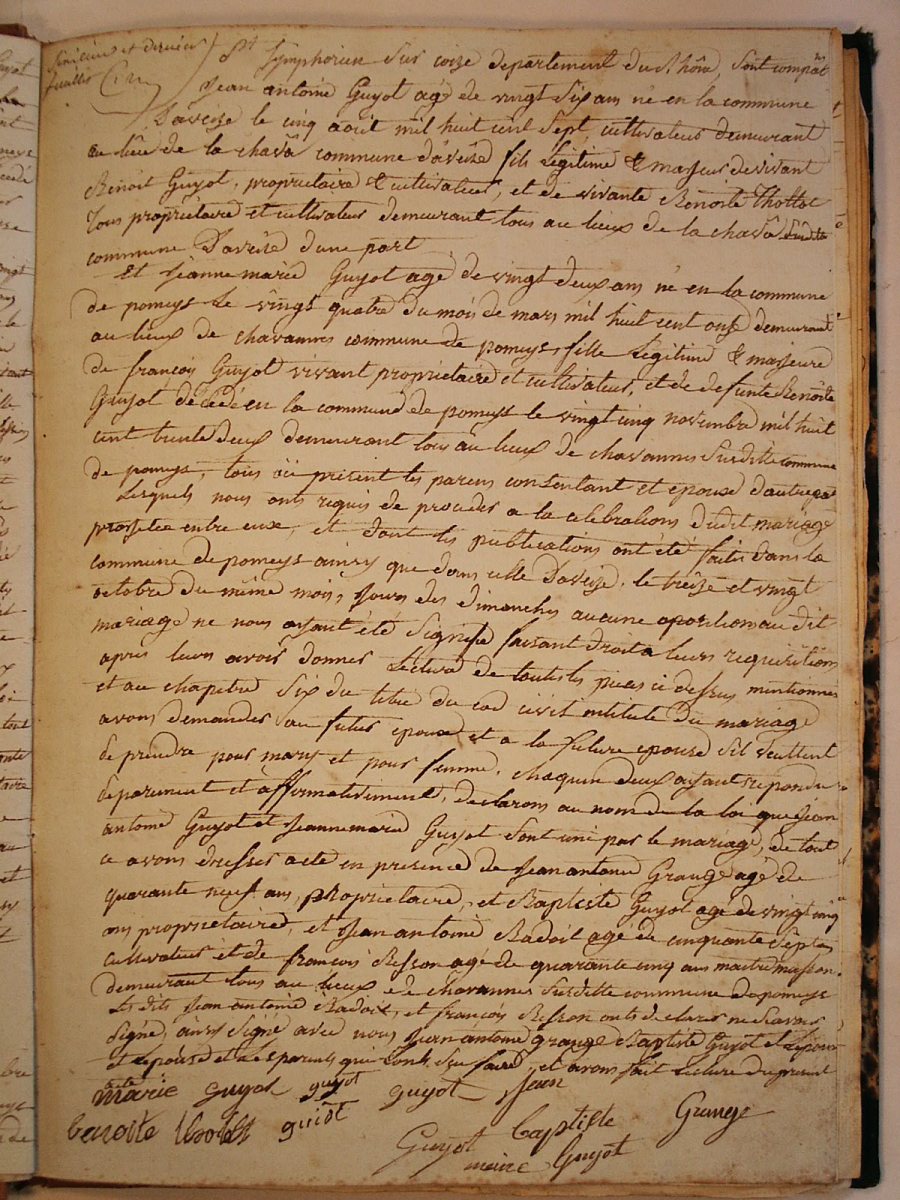 dernier
feuillet
St Symphorien sur coize departement du Rhône, sont comparû
Jean antoine Guyot agé de vingt six ans né en la commune
Daveize le cinq août mil huit cent sept, cultivateur demeurant
au lieu de la chavâ commune d'aveize fils legitime & majeur de vivant
Benoit Guyot, proprietaire & cultivateur, et de vivante Benoite
tous proprietaire et cultivateur demeurant tous au lieux de la chavâ susditte
commune Daveize d'une part
Et Jeanne marie Guyot agé de vingt deux ans né en la commune
de pomeys le vingt quatre du mois de mars mil huit cent onze demeurant
au lieux de chavannes commune de pomeys, fille legitime & majeure
de françois Guyot vivant proprietaire et cultivateur, et de defunte Benoite
Guyot décédé en la commune de pomeys le vingt cinq novembre mil huit
cent trente deux demeurant tous au lieux de chavannes susditte commune
de pomeys, tous ici présent les parens consentant et epouse d'autre part
Lesquels nous onts requis de proceder a la celebrations dudit mariage
projetée entre eux, et dont les publications ont été faites dans la
commune de pomeys ainsy que dans celle Daveize, le treize et vingt
octobre du même mois, jours des dimanches aucune oposition au dit
mariage ne nous ayant été signifié faisant droit a leurs requisitions
apres leurs avoir donner lecture de toutes les pieces ci dessus mentionnes
et au chapitre six du titre du cod civil intitulé du mariage
avons demander au futur epoux et a la future epouse s'il veullent
se prendre pour mary et pour femme, chaquun deux ayant repondu
separement et affirmativement, declarons au nom de la loi que Jean
antoine Guyot et Jeanne marie Guyot sont uni par le mariage, de tout
ce avons dresser acte en presence de Jean antoine Grange agé de
quarante neuf ans, proprietaire, et Baptiste Guyot agé de vingt cinq
ans proprietaire, et Jean antoine Badoit agé de cinquante sept ans
cultivateur et de françois Besson agé de quarante cinq ans maitre masson
demeurant tous au lieux de chavannes susditte commune de pomeys
Les dits Jean antoine Badoit, et françois Besson onts declarer ne scavoir
signé, ainsy signé avec nous Jean antoine grange Baptiste Guyot et l'epoux
et l'epouse et les parents que l'ont sçu faire, et avons fait lecture du present
acte
marie guyot guyot guyot Jean
benoite guiot Baptiste Grange
Guyot
maire Guyot